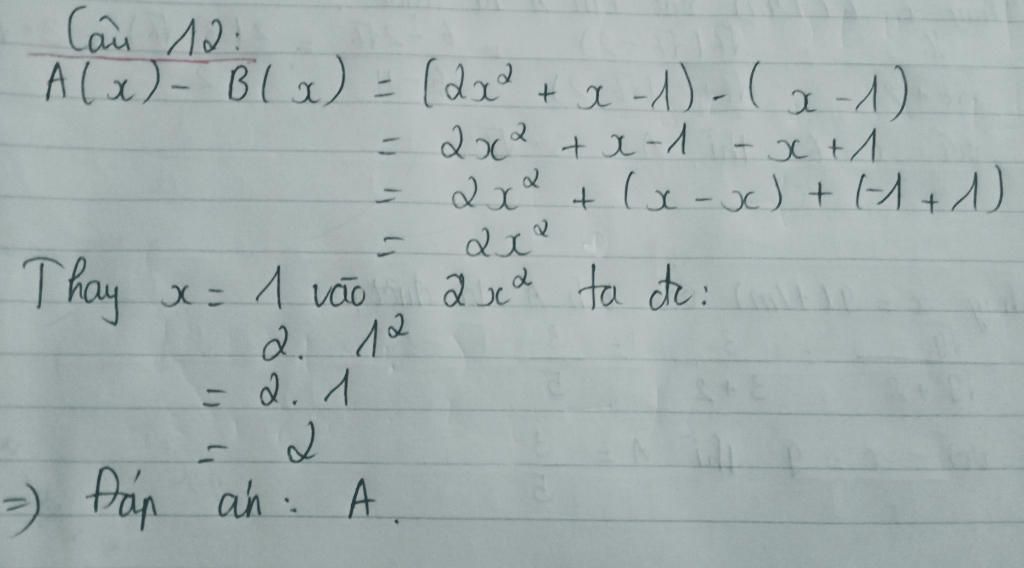 Câu 12:
A(x) - B(x) = (2x² + x - 1) - (x - 1)
= 2x² + x - 1 - x + 1
= 2x² + (x - x) + (-1 + 1)
= 2x²
Thay x = 1 vào 2x² ta đc:
2. 1²
= 2. 1
= 2
=> Đáp án: A.